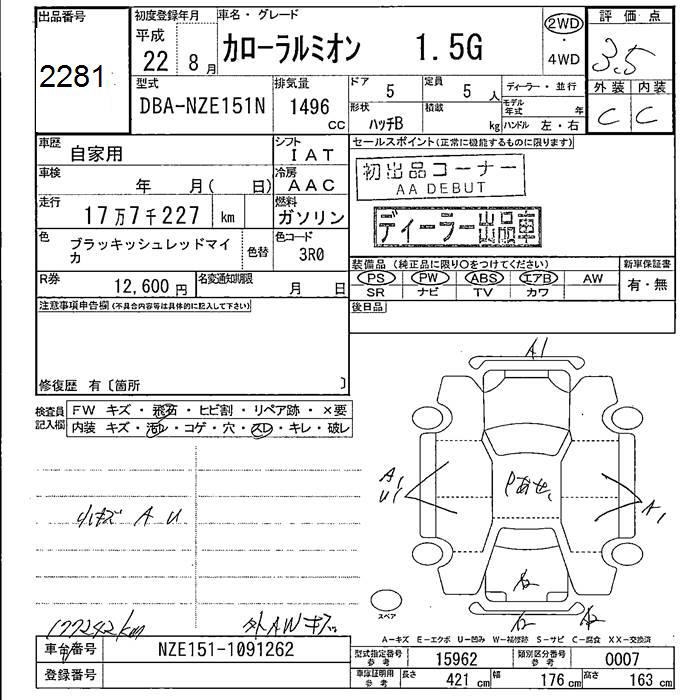 出品番号
2281
初度登録年月
平成
22 8 月
車名・グレード
カローラルミオン 1.5G
2WD
・
4WD
評価点
3.5
外装 内装
C C
型式
DBA-NZE151N
排気量
1496
CC
ドア
5
定員
5 人
ディーラー・並行
形状
ハッチB
積載
kg
モデル
年式 年
ハンドル 左・右
車歴
自家用
シフト
IAT
車検
年 月( 日)
冷房
AAC
走行
17万7千227 km
燃料
ガソリン
色
ブラッキッシュレッドマイ
カ
色替
色コード
3R0
R券
12,600 円
名変通知期限
月 日
セールスポイント(正常に機能するものに限ります)
初出品コーナー
AA DEBUT
ディーラー出品車
装備品(純正品に限り○をつけてください)
PS PW ABS エアB AW
SR ナビ TV カワ
新車保証書
有・無
後日品
注意事項申告欄(不具合内容等は具体的に記入して下さい)
修復歴 有〔箇所 〕
検査員
記入欄
FW キズ・飛石・ヒビ割・リペア跡・×要
内装 キズ・汚れ・コゲ・穴・スレ・キレ・破レ
小キズ A U
177242km
外AWキズ
A1
A1
U1
Pあせ
A1
A2
A2
スペア
A-キズ E-エクボ U-凹み W-補修跡 S-サビ C-腐食 XX-交換済
車台番号
NZE151-1091262
登録番号
型式指定番号
参考
15962
類別区分番号
参考
0007
車庫証明用
参考
長さ
421 cm
幅
176 cm
高さ
163 cm